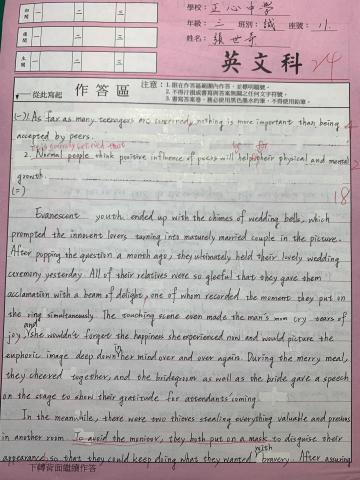 學校: 正心中學
年級: 三 班別: 誠 座號: 11.
姓名:
英文科 24
一 二 三
一 二 三
一 二 三
從此寫起
作答區
注意: 1.限在作答區範圍內作答,並標明題號。
2.不得於測試或書寫與答案無關之任何文字符號。
3.書寫答案卷,務必使用黑色墨水的筆,不得使用鉛筆。
(一)1. As far as many teenagers are concerned, nothing is more important than being 4
accepted by peers.
It is generally believed that
2. Normal people think positive influence of peers will help their physical and mental 2
growth.
(二) 18
Evanescent youth ended up with the chimes of wedding bells, which
prompted the innocent lovers turning into maturely married couple in the picture.
After popping the question a month ago, they ultimately held their lovely wedding
ceremony yesterday. All of their relatives were so gleeful that they gave them
acclamation with a beam of delight, one of whom recorded the moment they put on
the ring simultaneously. The touching scene even made the man's mom cry tears of
joy, and she wouldn't forget the happiness she experienced now and would picture the
euphoric image deep down in her mind over and over again. During the merry meal,
they cheered together, and the bridegroom as well as the bride gave a speech
on the stage to show their gratitude for attendants' coming.
In the meanwhile, there were two thieves stealing everything valuable and precious
in another room. To avoid the monitor, they both put on a mask to disguise their
appearance, so that they could keep doing what they wanted with bravery. After assuring
下轉背面繼續作答